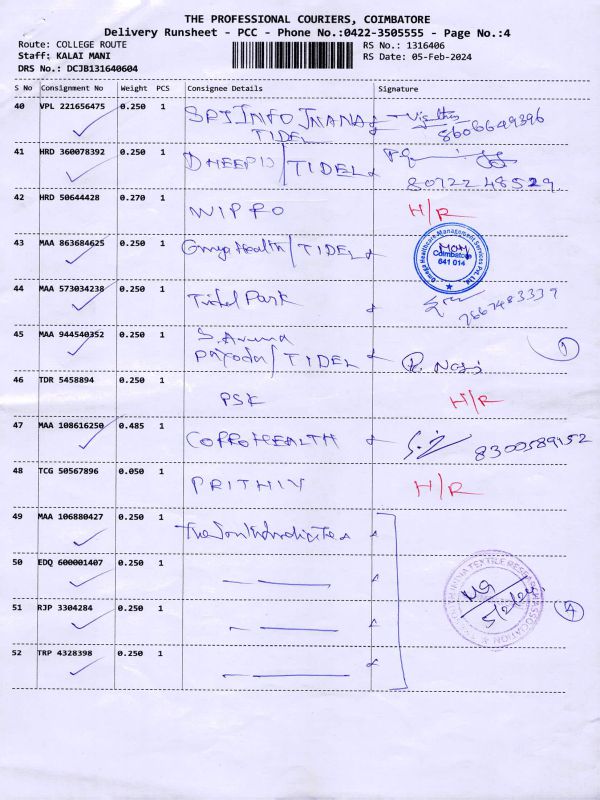 THE PROFESSIONAL COURIERS, COIMBATORE
Delivery Runsheet - PCC - Phone No.:0422-3505555 - Page No.:4
Route: COLLEGE ROUTE RS No.: 1316406
Staff: KALAI MANI RS Date: 05-Feb-2024
DRS No.: DCJB131640604
S No Consignment No Weight PCS Consignee Details Signature
40 VPL 221656475 0.250 1
TIDEL 8606649396
41 HRD 360078392 0.250 1 DHEEPIJ/TIDEL
8072248529
42 HRD 50644428 0.270 1 WIPRO H/R
43 MAA 863684625 0.250 1 Omega Health/TIDEL Omega Healthcare Management Services Pvt. Ltd. Coimbatore 641 014
44 MAA 573034238 0.250 1 Tidel Park 7667483337
45 MAA 944540352 0.250 1 S. Aruna
Payoda/TIDEL 1
46 TDR 5458894 0.250 1 PSK H/R
47 MAA 108616250 0.485 1 COPROHEALTH 8300589152
48 TCG 50567896 0.050 1 PRITHIV H/R
49 MAA 106880427 0.250 1
50 EDQ 600001407 0.250 1
51 RJP 3304284 0.250 1 TEXTILE RESEARCH ASSOCIATION 5/2/24 4
52 TRP 4328398 0.250 1